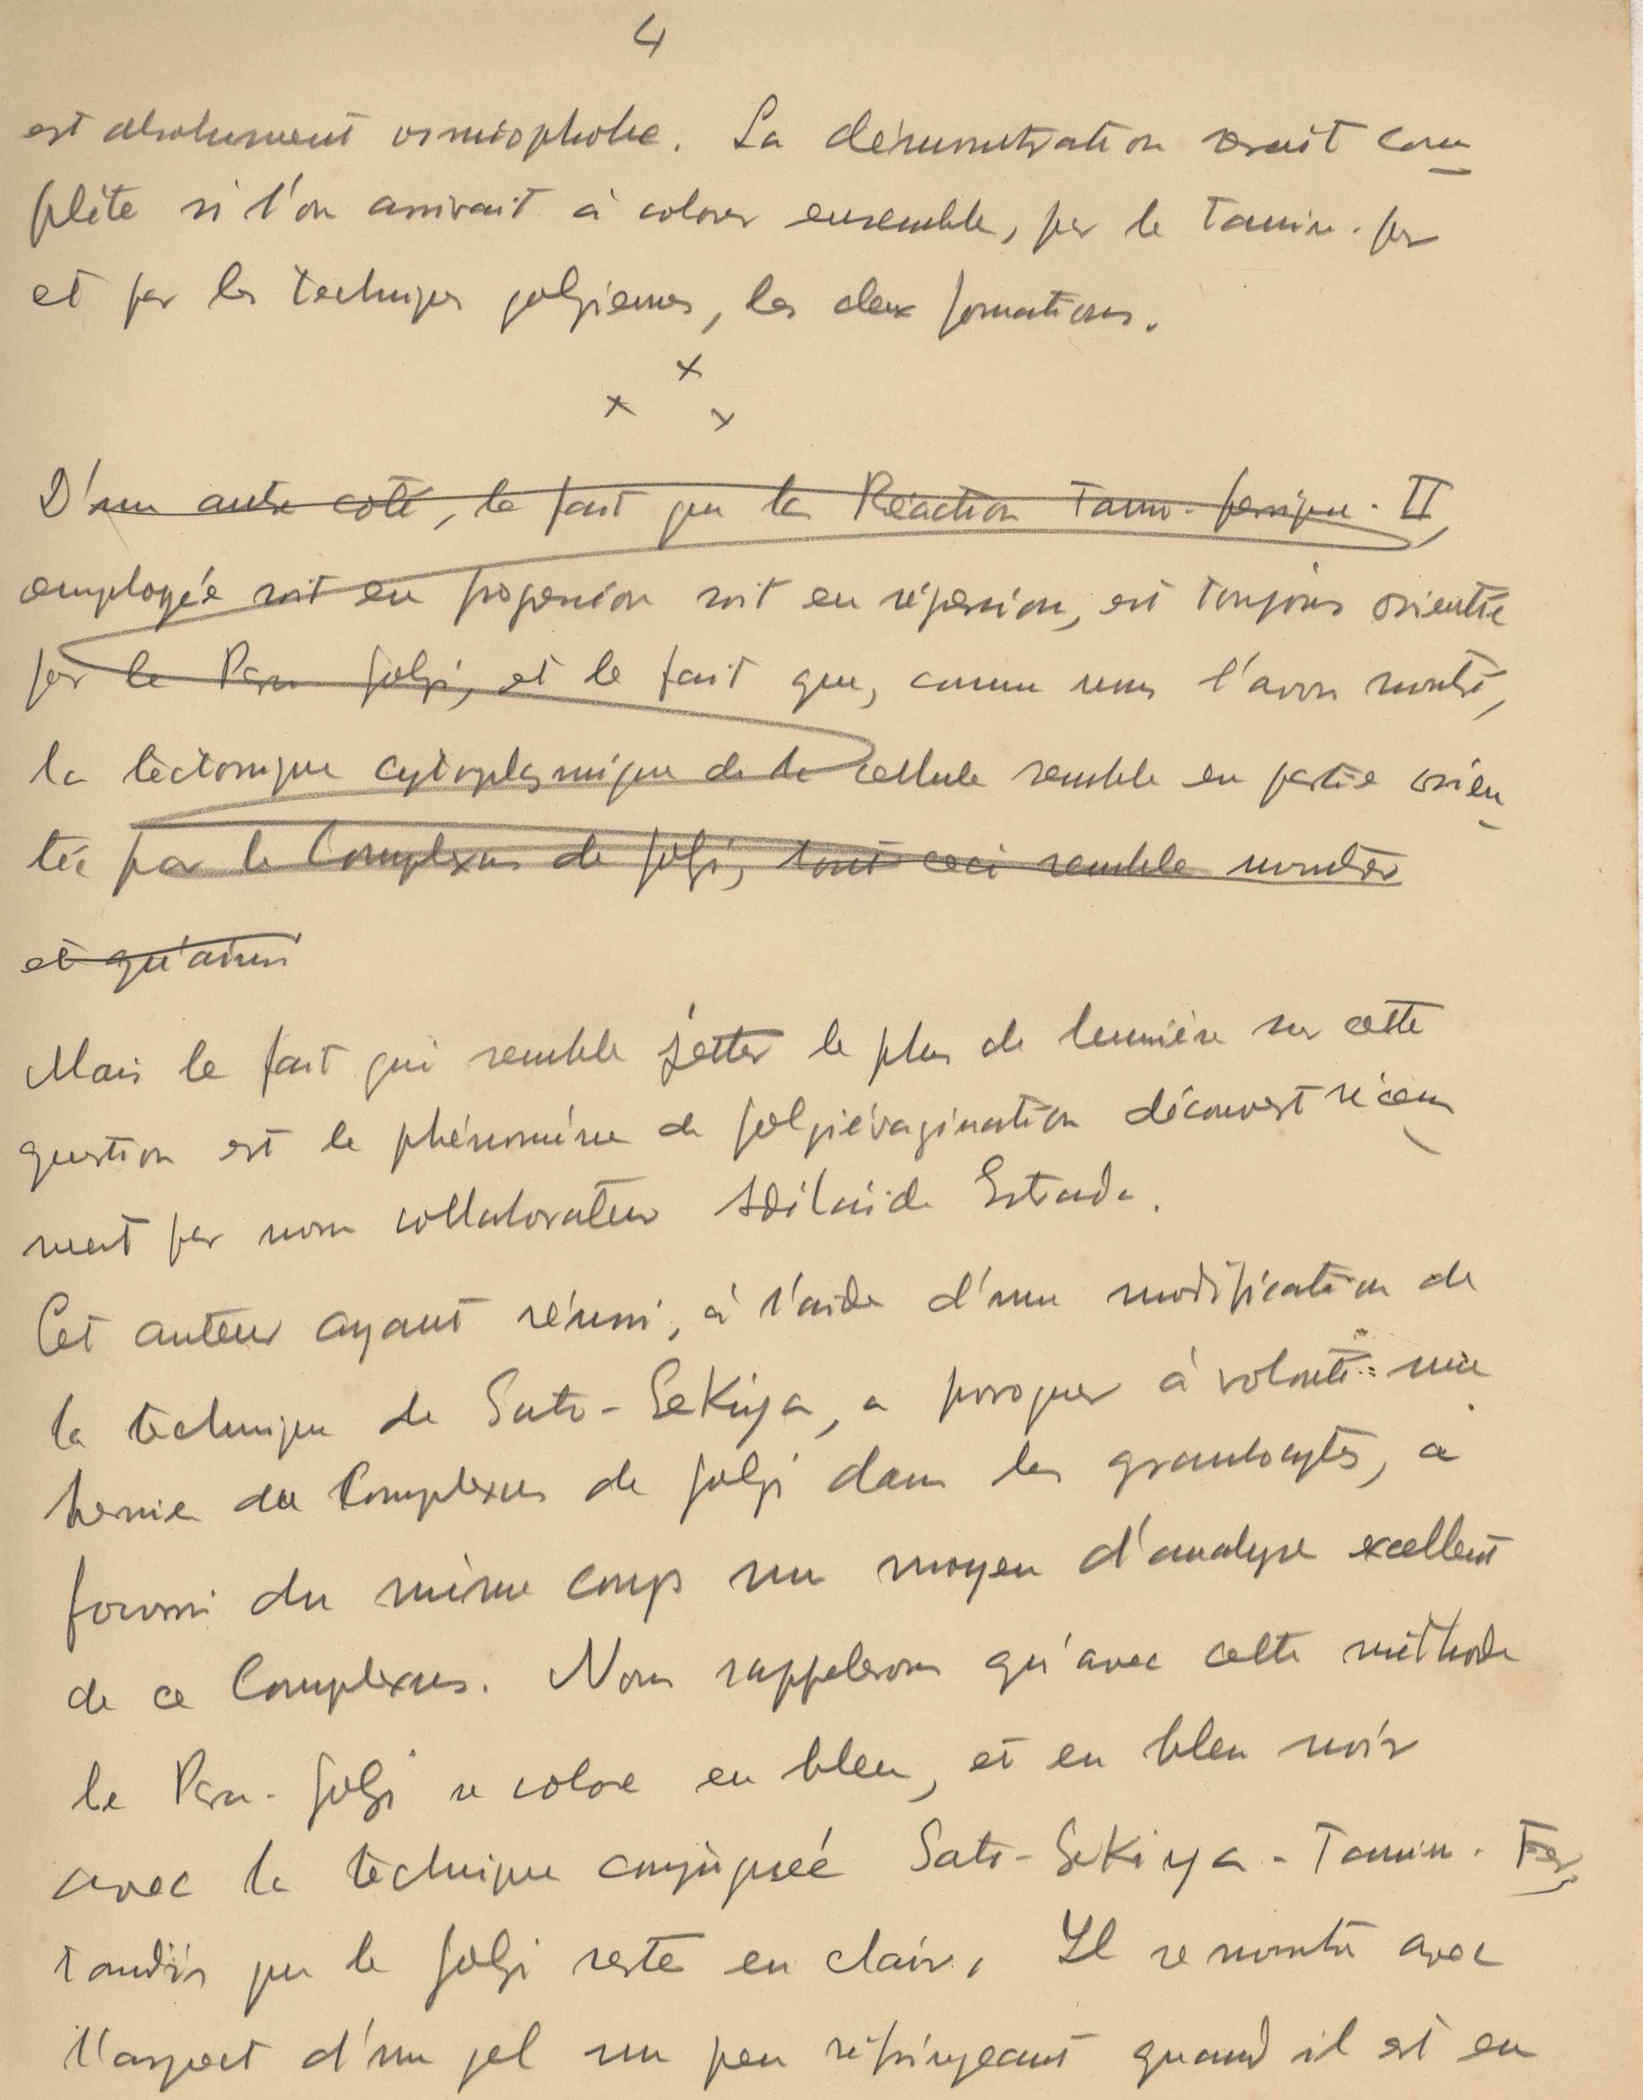 4
est absolument osmiophobe. La démonstration serait com
plète si l'on arrivait à colorer ensemble, par le Tannin. fer
et par les techniques golgiennes, les deux formations.
x
x x
D'un autre coté, le fait que la Réaction Tann. ferrique. II,
employée soit en progression soit en régression, est toujours orientée
par le Para Golgi, et le fait que, comme nous l'avons montré,
la tèctonique cytoplasmique de la cellule semble en partie orien
tée par le Complexus de Golgi, tout ceci semble montrer
et qu'ainsi
Mais le fait qui semble jetter le plus de lumière sur cette
question est le phénomène de golgiévagination découvert récem
ment par notre collaborateur Adélaide Estrada.
Cet auteur ayant réussi, à l'aide d'une modification de
la technique de Sato-Sekiya, a provoquer à volonté une
hernie du Complexus de Golgi dans les granulocytes, a
fourni du même coup un moyen d'analyse excellent
de ce Complexus. Nous rappelerons qu'avec cette méthode
le Para-Golgi se colore en bleu, et en bleu noir
avec la technique conjuguée Sato-Sekiya-Tannin. Fer
tandis que le Golgi reste en clair. Il se montre avec
l'aspect d'un gel un peu réfringeant quand il est en